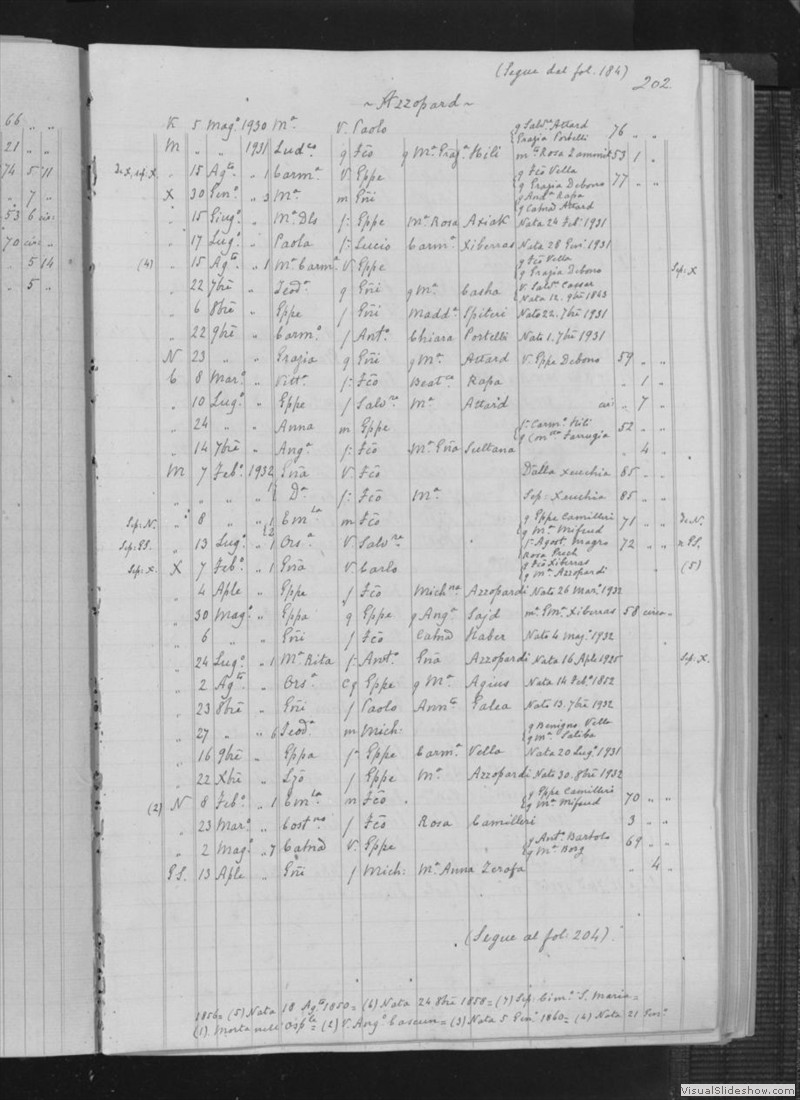 (Segue dal fol. 184)
202
~ Azzopard ~
66 " "
21 " "
74 5 11
" 7 "
53 6 circ
70 circ " "
" 5 14
" 5 "
K 5 Mag.o 1930 M.a V. Paolo g Salv.e Attard 76 " "
Grazia Portelli
M " " 1931 Lud.co g Fcõ g M.a Graz.a Hili m.a Rosa Zammit 53 1 "
" 15 Ag.to " 1 Carm.a V. Eppe g Fcõ Vella 77 " "
g Grazia Debono
X 30 Gen.o " 3 M.a m Gñi g And.a Rapa
g Catnã Attard
" 15 Giug.o " M.a Dls f. Eppe M.a Rosa Axiak Nata 24 Feb.o 1931
" 17 Lug.o " Paola f. Lucio Carm.a Xiberras Nata 28 Gen.o 1931
(4) " 15 Ag.to " 1 M.a Carm.a V. Eppe g Fcõ Vella Sep: X
g Grazia Debono
" 22 7bre " Teod.a g Gñi g M.a Casha V. Salv.e Cassar
Nata 12. 9bre 1843
" 6 8bre " Eppe f Gñi Madd.a Spiteri Nato 22. 7bre 1931
" 22 9bre " Carm.o f Ant.o Chiara Portelli Nato 1. 7bre 1931
N 23 " " Grazia g Gñi g M.a Attard V. Eppe Debono 59 " "
C 8 Mar.o " Vitt.a f. Fcõ Beat.ce Rapa " 1 "
" 10 Lug.o " Eppe f Salv.re M.a Attard circ " 7 "
" 24 " " Anna m Eppe f. Carm.o Hili 52 " "
Farrugia
" 14 7bre " Ang.a f. Fcõ M.a Gñã Sultana " 4 "
M 7 Feb.o 1932 Gñã V. Fcõ Dalla Xeuchia 85 " "
" " " " D.a f. Fcõ M.a Sep: Xeuchia 85 " "
Sep: N. " 8 " " 1 Em.la m Fcõ g Eppe Camilleri 71 " " N.
g M.a Mifsud
Sep: PS. " 13 Lug.o " 1 Ors.a V. Salv.re f. Agost. Magro 72 " " PS.
Rosa Puch
Sep: X. X 7 Feb.o " 1 Gñã V. Carlo g Fcõ Xiberras " (5)
g M.a Azzopardi
" 4 Aple " Eppe f Fcõ Mich.na Azzopardi Nato 26 Mar.o 1932
" 30 Mag.o " Eppa g Eppe g Ang.a Sajd m. Em. Xiberras 58 circa "
" 6 " " Gñi f Fcõ Catnã Haber Nato 4 mag.o 1932
" 24 Lug.o " 1 M.a Rita f. Ant.o Gñã Azzopardi Nata 16 Aple 1925 Sep: X.
" 2 Ag.to " Ors.a Cg Eppe g M.a Agius Nata 14 Feb.o 1852
" 23 8bre " Gñi f Paolo Ann.ta Galea Nato 13. 7bre 1932
" 27 " " 6 Teod.a m Mich: g Benigno Vella
g M.a Saliba
" 16 9bre " Eppa f. Eppe Carm.a Vella Nata 20 Lug.o 1931
" 22 Xbre " Lzõ f Eppe M.a Azzopardi Nato 30. 8bre 1932
(2) N 8 Feb.o " 1 Em.la m Fcõ g Eppe Camilleri 70 " "
g M.a Mifsud
" 23 Mar.o " Cost.no f Fcõ Rosa Camilleri 3 " "
" 2 Mag.o " 7 Catnã V. Eppe g Ant.o Bartolo 69 " "
g M.a Borg
PS. 13 Aple " Gñi f Mich: M.a Anna Zerafa " 4 "
(Segue al fol: 204)
1856= (5) Nata 18 Ag.to 1850= (6) Nata 24 8bre 1858= (7) Sep: Cim.o S. Maria=
(1) Morta nell' Osp.le= (2) V. Ang.o Cascun= (3) Nata 5 Gen.o 1860= (4) Nata 21 Gen.o
VisualSlideshow.com